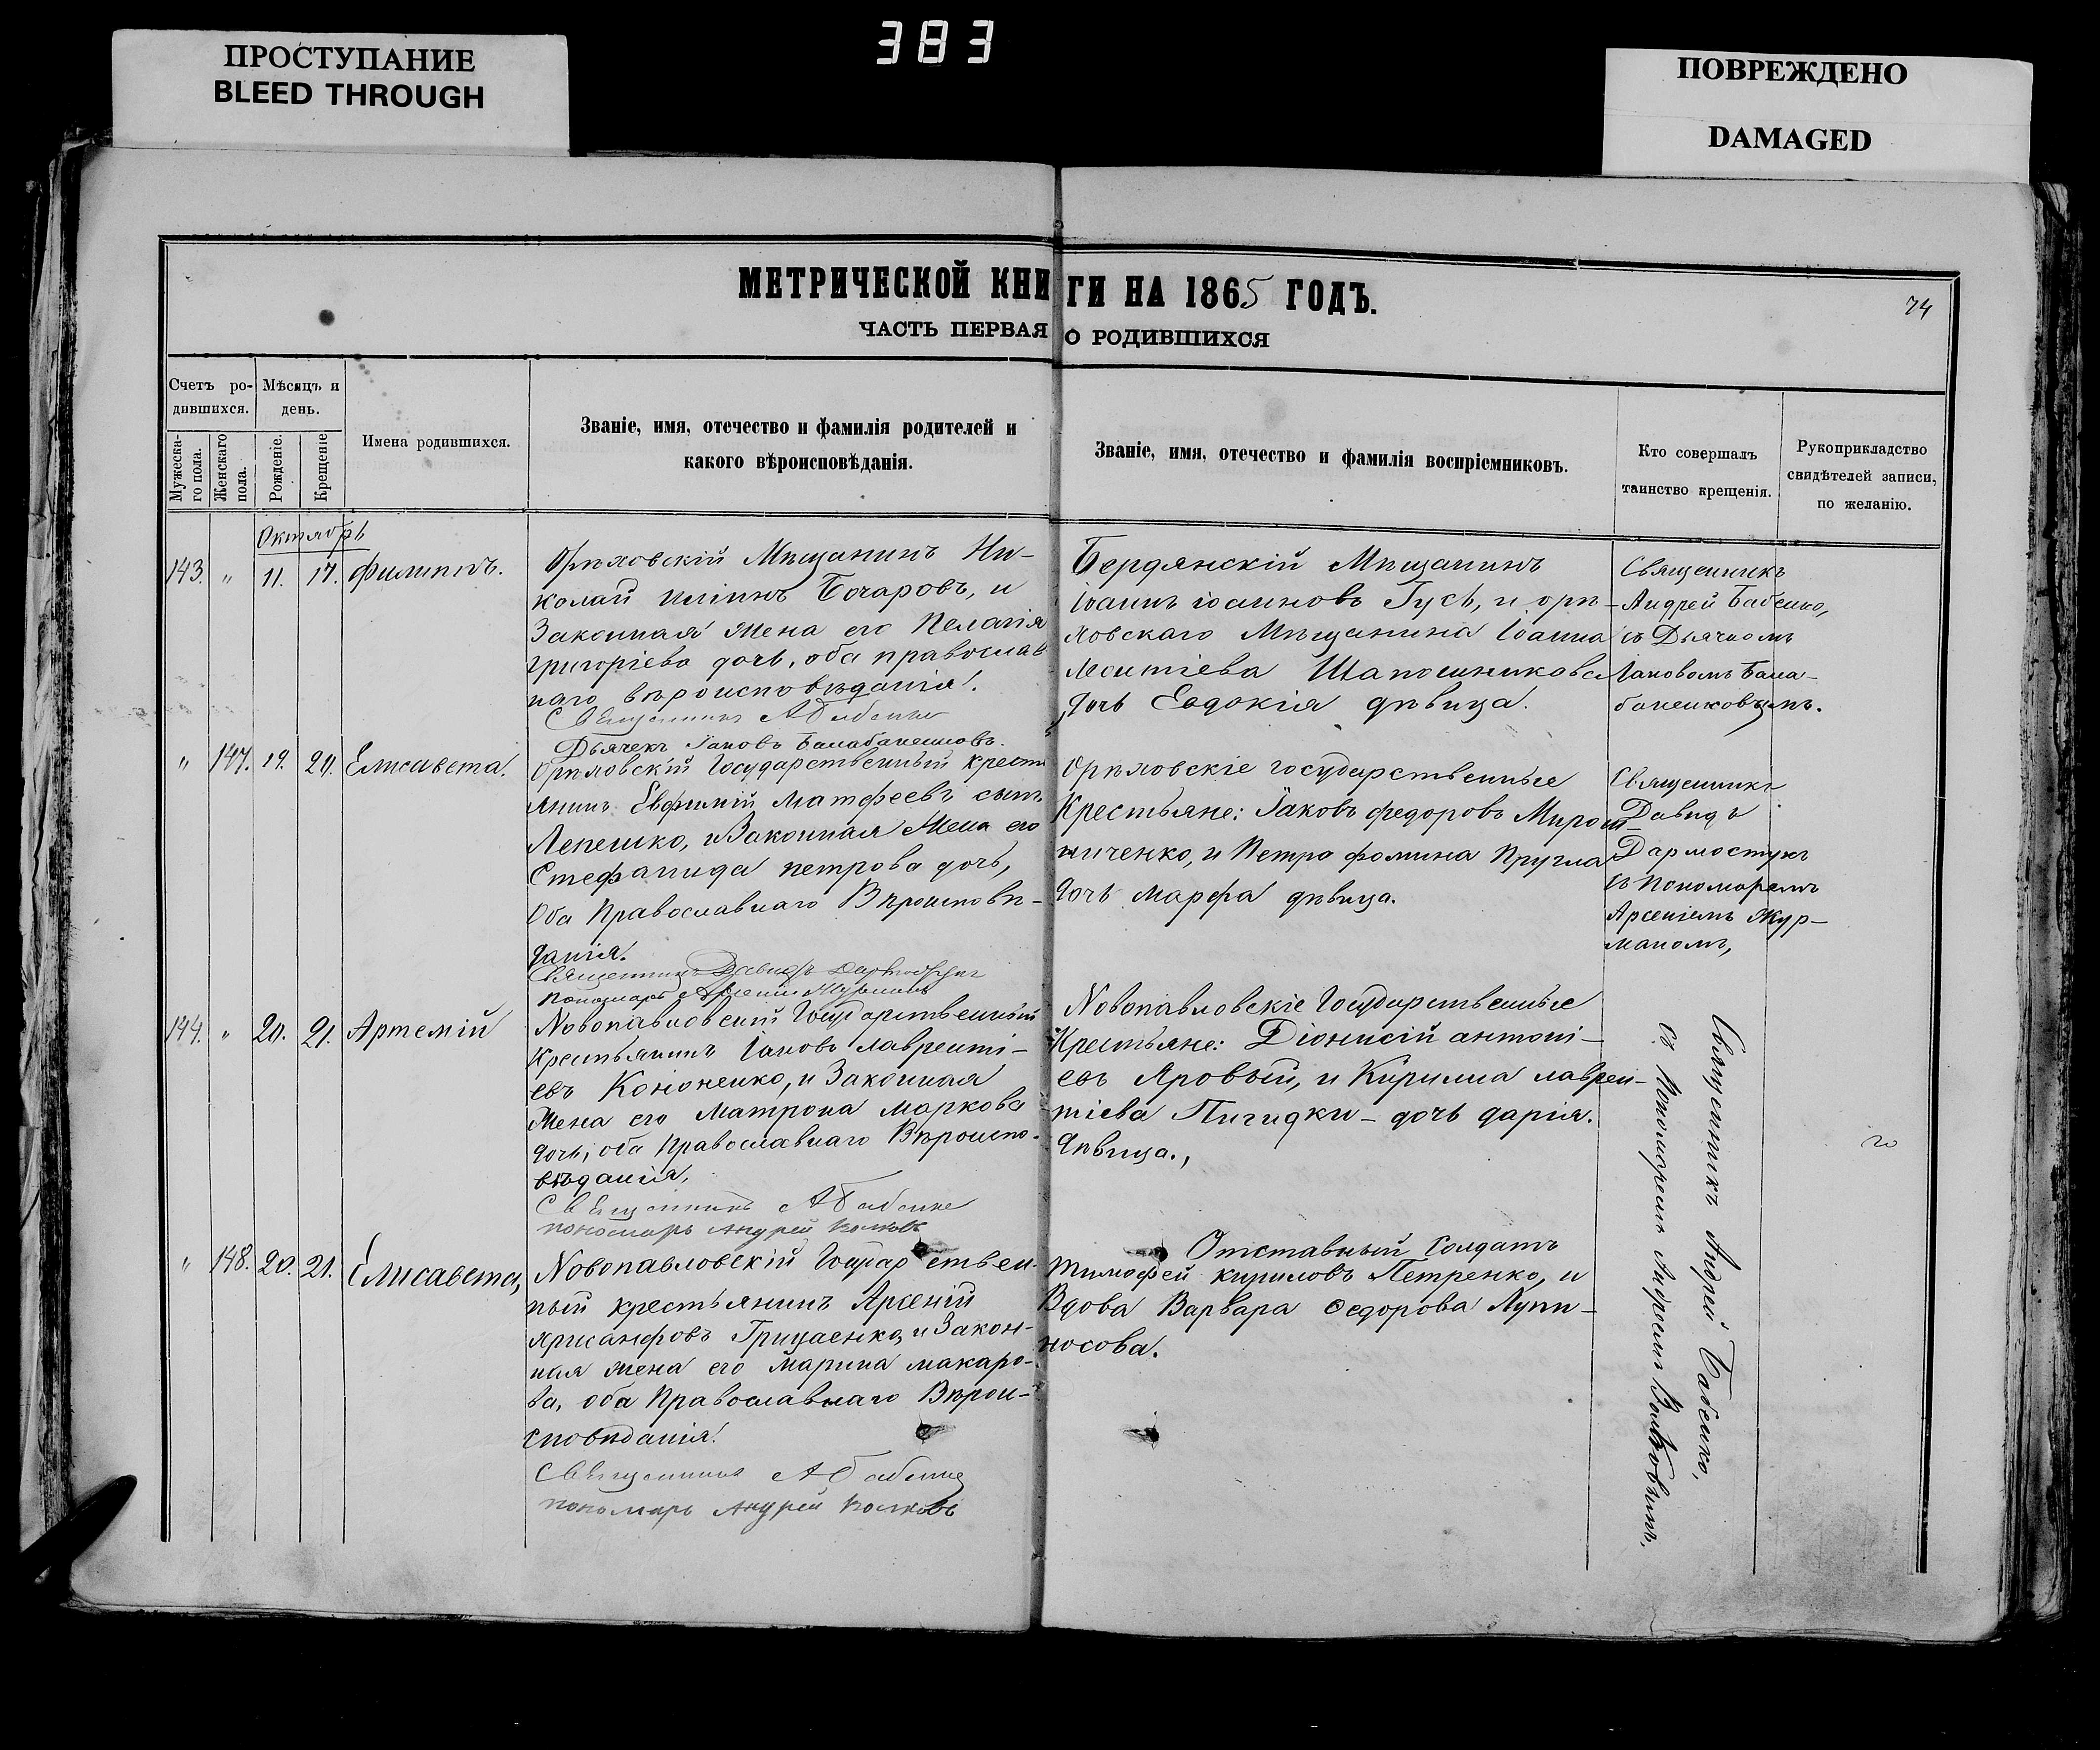 383
ПРОСТУПАНИЕ
BLEED THROUGH
ПОВРЕЖДЕНО
DAMAGED
МЕТРИЧЕСКОЙ КНИГИ НА 1865 ГОДЪ.
74
ЧАСТЬ ПЕРВАЯ О РОДИВШИХСЯ
Счетъ ро-
дившихся.
Мѣсяцъ и
день.
Мужеска-
го пола.
Женскаго
пола.
Рожденіе.
Крещеніе
Имена родившихся.
Званіе, имя, отечество и фамилія родителей и
какого вѣроисповѣданія.
Званіе, имя, отечество и фамилія воспріемниковъ.
Кто совершалъ
таинство крещенія.
Рукоприкладство
свидѣтелей записи,
по желанію.
Октябрь
143. " 11. 17. Филиппъ.
Орѣховскій Мѣщанинъ Ни-
колай Иліинъ Бочаровъ, и
Законная Жена его Пелагія
григоріева дочь, оба православ
наго вѣроисповѣданія.
Священникъ А Бабенко
Дьячекъ Іаковъ Балабаненковъ.
Бердянскій Мѣщанинъ
Іоаннъ іоанновъ Гусь, и орѣ-
ховскаго Мѣщанина Іоанна
Леонтіева Шапошникова
дочь Евдокія дѣвица.
Священникъ
Андрей Бабенко,
съ Дьячкомъ
Іаковомъ Бала-
баненковымъ.
" 147. 19. 20. Елисавета.
Орѣховскій Государственный крестья
янинъ Евфимій Матфеевъ сынъ
Лепешко, и Законная Жена его
Стефанида петрова дочь,
Оба Православнаго Вѣроисповѣ-
данія.
Священникъ Давидъ Дармостукъ
Пономарь Арсеній Журманъ
Орѣховскіе государственные
Крестьяне: Іаковъ федоровъ Мирош-
ниченко, и Петра фомина Пругла
дочь марфа дѣвица.
Священникъ
Давидъ
Дармостукъ
съ пономаремъ
Арсеніемъ Жур-
маномъ,
144. " 20. 21. Артемій
Новопавловскій Государственный
Крестьянинъ Іаковъ лаврентіе-
евъ Кононенко, и Законная
Жена его Матрона маркова
дочь, оба Православнаго Вѣроиспо-
вѣданія.
Священникъ А Бабенко
пономарь Андрей Волковъ
Новопавловскіе Государственные
Крестьяне: Діонисій антоні-
евъ Яровый, и Кирилла лаврен-
тіева Пигидки - дочь дарія.
дѣвица.,
Священникъ Андрей Бабенко,
съ Пономаремъ Андреемъ Волковымъ.
" 148. 20. 21. Елисавета,
Новопавловскій Государственн-
ный крестьянинъ Арсеній
Грицаенко, и Закон-
ная жена его Марина макаро-
ва, оба Православнаго Вѣрои-
сповѣданія.
Священникъ А Бабенко
пономарь Андрей Волковъ
Отставный Солдатъ
Тимофей кириловъ Петренко, и
Вдова Варвара Федорова Лупи-
носова.